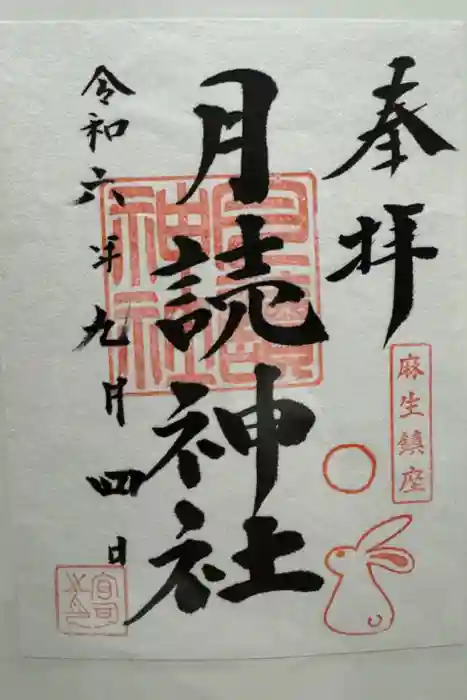 奉拝
麻生鎮座
月読神社
令和六年九月四日